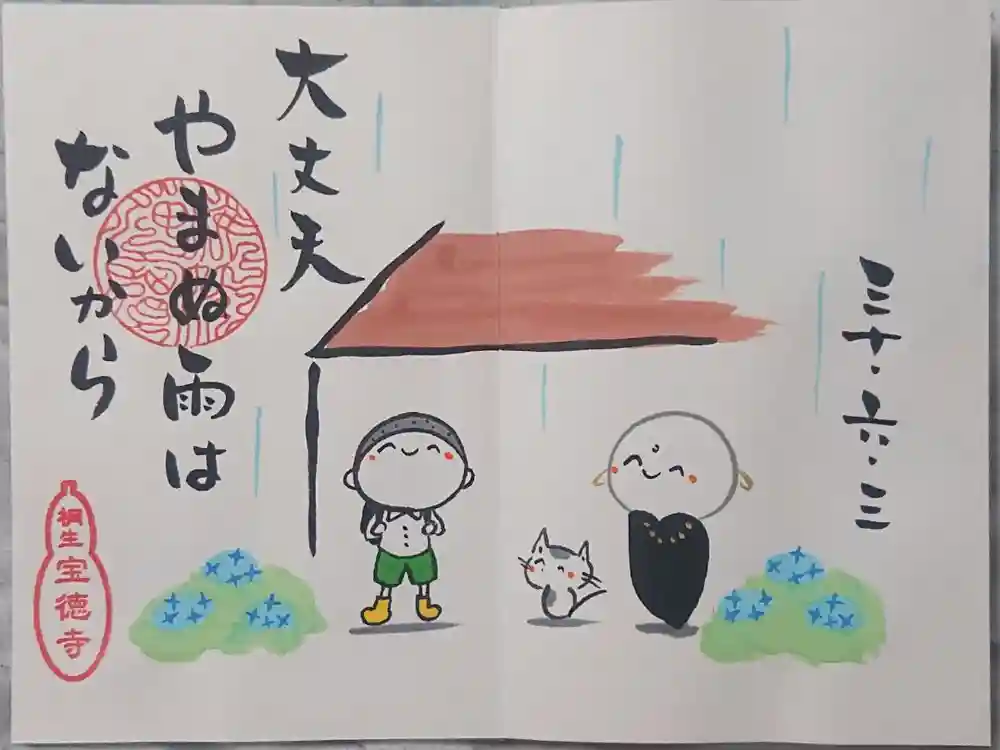 三十・六・三
大丈夫
やまぬ雨は
ないから
桐生
宝徳寺